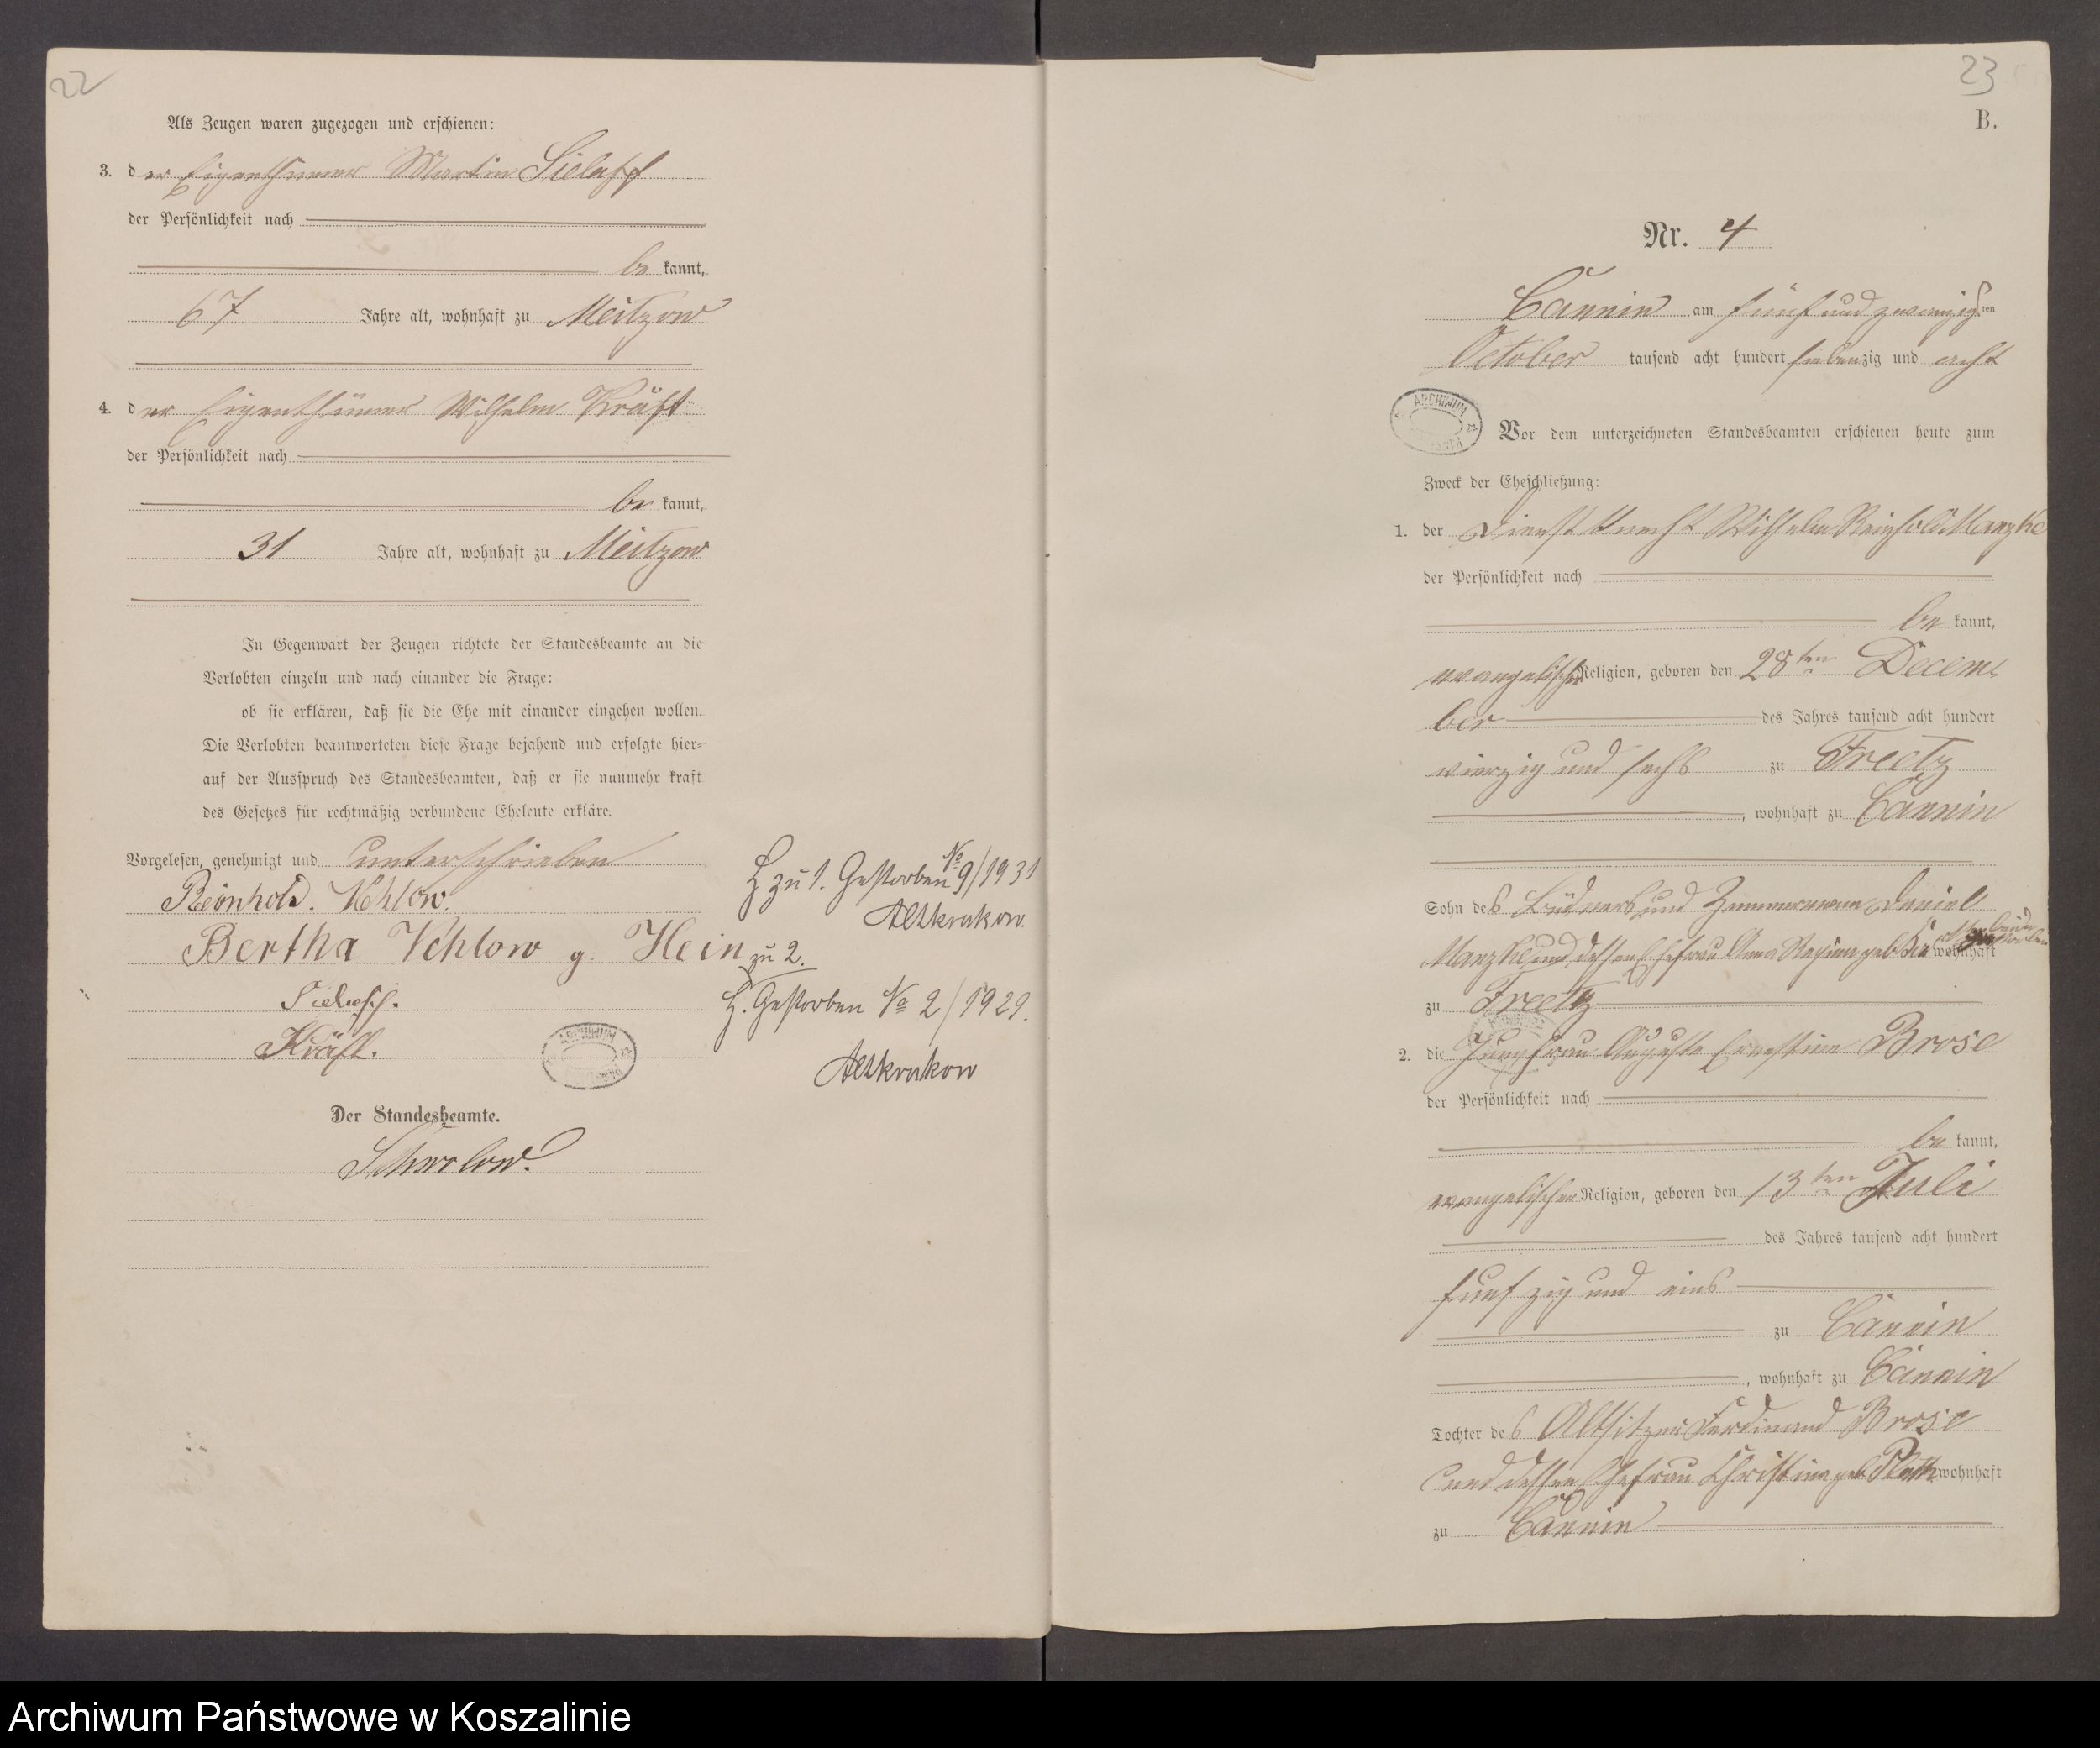 22
Als Zeugen waren zugezogen und erschienen:
3. der Eigenthümer Martin Sielaff
der Persönlichkeit nach
be kannt,
67 Jahre alt, wohnhaft zu Meitzow
4. der Eigenthümer Wilhelm Kräft
der Persönlichkeit nach
be kannt,
31 Jahre alt, wohnhaft zu Meitzow
In Gegenwart der Zeugen richtete der Standesbeamte an die
Verlobten einzeln und nach einander die Frage:
ob sie erklären, daß sie die Ehe mit einander eingehen wollen.
Die Verlobten beantworteten diese Frage bejahend und erfolgte hier-
auf der Ausspruch des Standesbeamten, daß er sie nunmehr kraft
des Gesetzes für rechtmäßig verbundene Eheleute erkläre.
Vorgelesen, genehmigt und unterschrieben
Reinhold. Vehlow.
Bertha Vehlow g. Hein
Sielaff.
Kräft.
Der Standesbeamte.
H zu 1. Gestorben No 9/1931
Altkrakow.
zu 2.
H. Gestorben No 2/1929.
Altkrakow
ARCHIWUM
23
B.
Nr. 4
Cannin am fünf und zwanzigsten
October tausend acht hundert siebenzig und acht
ARCHIWUM
Vor dem unterzeichneten Standesbeamten erschienen heute zum
Zweck der Eheschließung:
1. der Dienstknecht Wilhelm Reinhold Manzke
der Persönlichkeit nach
be kannt,
evangelischer Religion, geboren den 28ten Decem-
ber des Jahres tausend acht hundert
vierzig und sechs zu Freetz
, wohnhaft zu Cannin
Sohn des Büdners und Zimmermann Daniel
Manzke und dessen Ehefrau Anna Regine geb. wohnhaft
zu Freetz
2. die Jungfrau Auguste Ernestine Brose
der Persönlichkeit nach
be kannt,
evangelischer Religion, geboren den 13ten Juli
des Jahres tausend acht hundert
funfzig und eins
zu Cannin
, wohnhaft zu Cannin
Tochter des Altsitzer Ferdinand Brose
und dessen Ehefrau Christine geb. Plath wohnhaft
zu Cannin
Archiwum Państwowe w Koszalinie